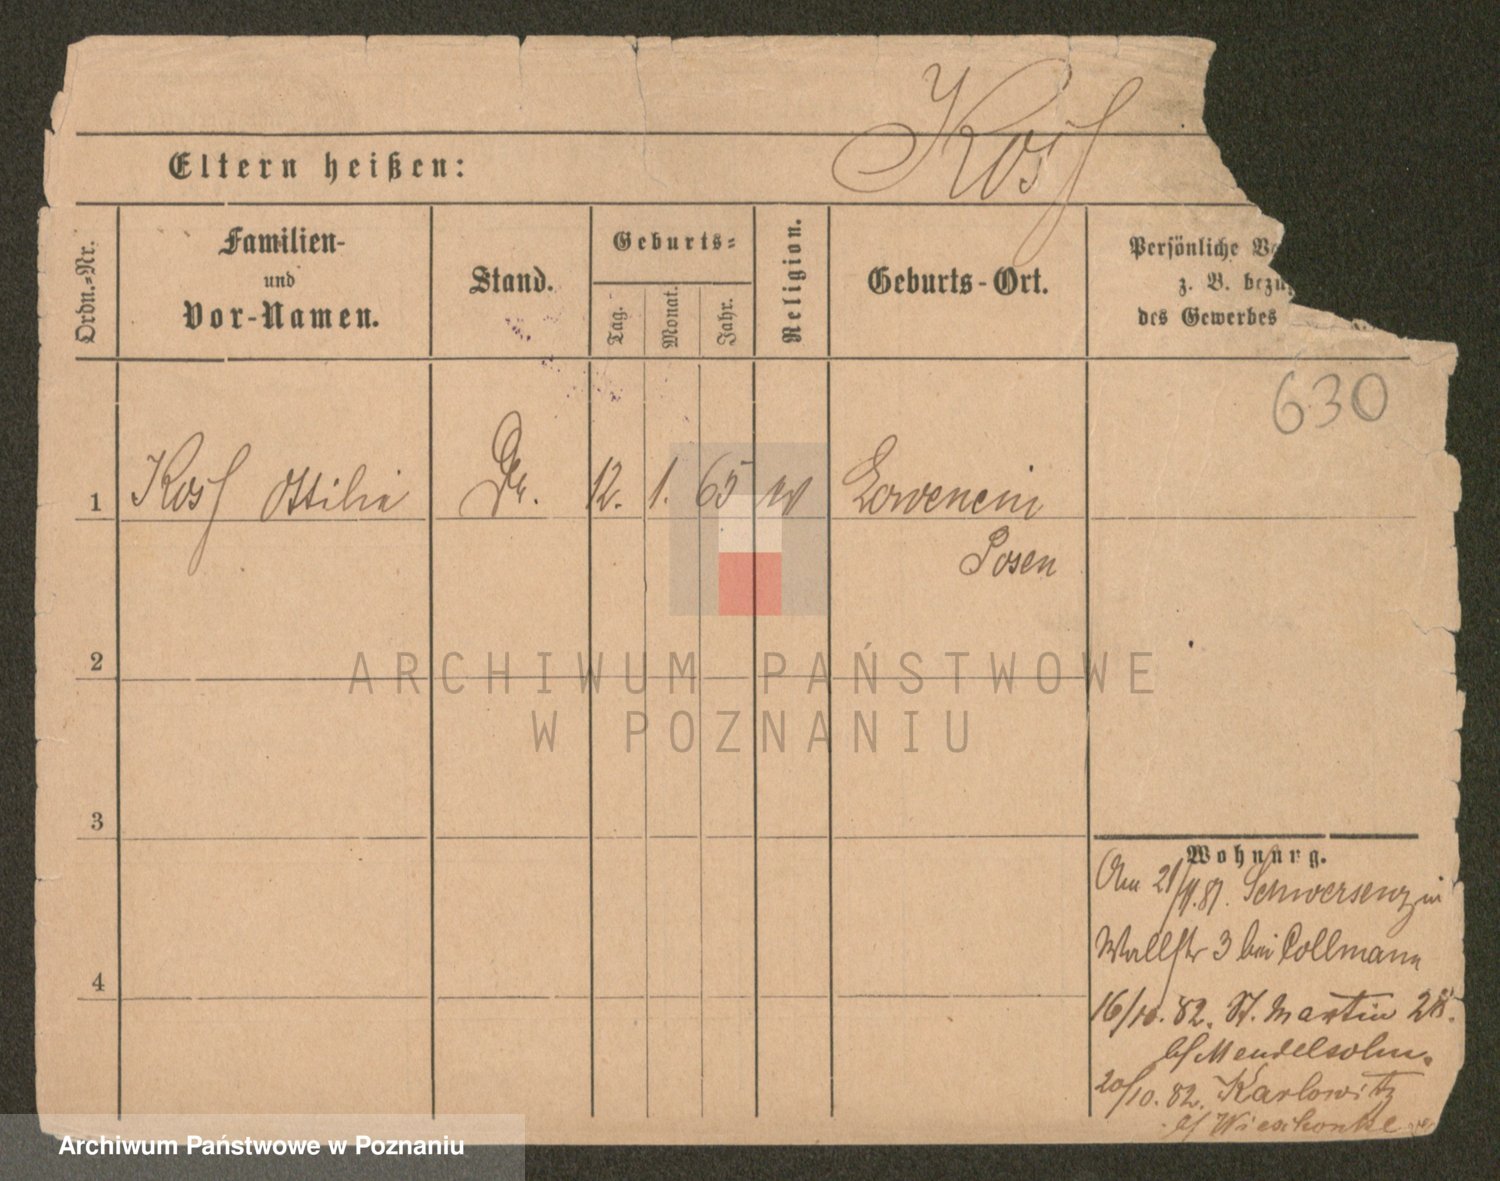 Kosſ
Eltern heißen:
Ordn.-Nr.
Familien-
und
Vor-Namen.
Stand.
Geburts-
Tag.
Monat.
Jahr.
Religion.
Geburts-Ort.
Persönliche
z. B.
des Gewerbes
630
1 Kosſ Ottilie 12. 1. 65
Posen
2
3
4
Wohnung.
Am 21/ 81. Schwersenz in
Wallstr 3 bei Collmann
16/10. 82. St. Martin 28.
b/ Mendelsohn.
20/10. 82. Karlowitz
b/
ARCHIWUM PAŃSTWOWE
W POZNANIU
Archiwum Państwowe w Poznaniu